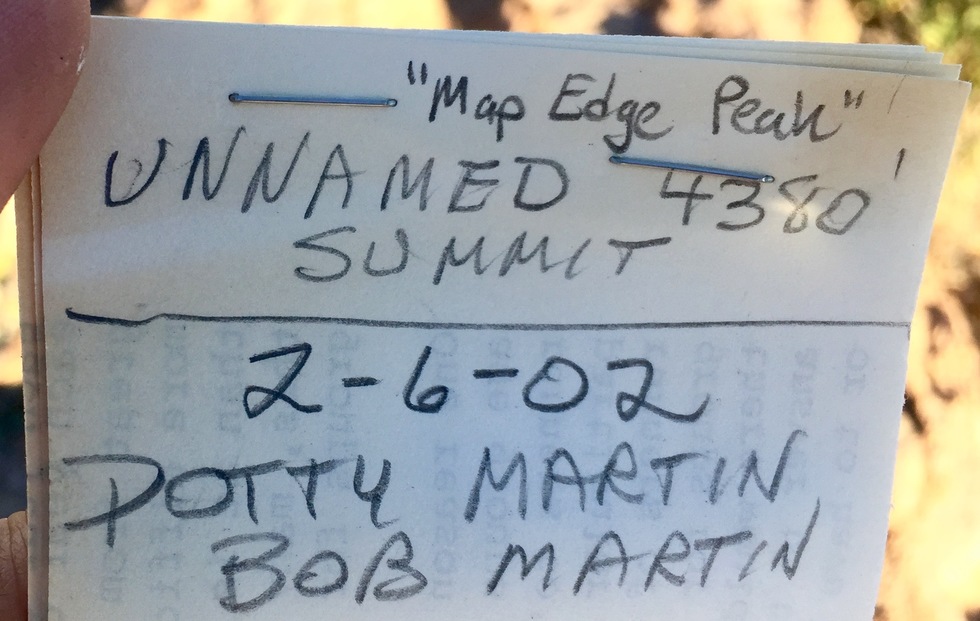 "Map Edge Peak"
UNNAMED 4380'
SUMMIT
2-6-02
DOTTY MARTIN
BOB MARTIN